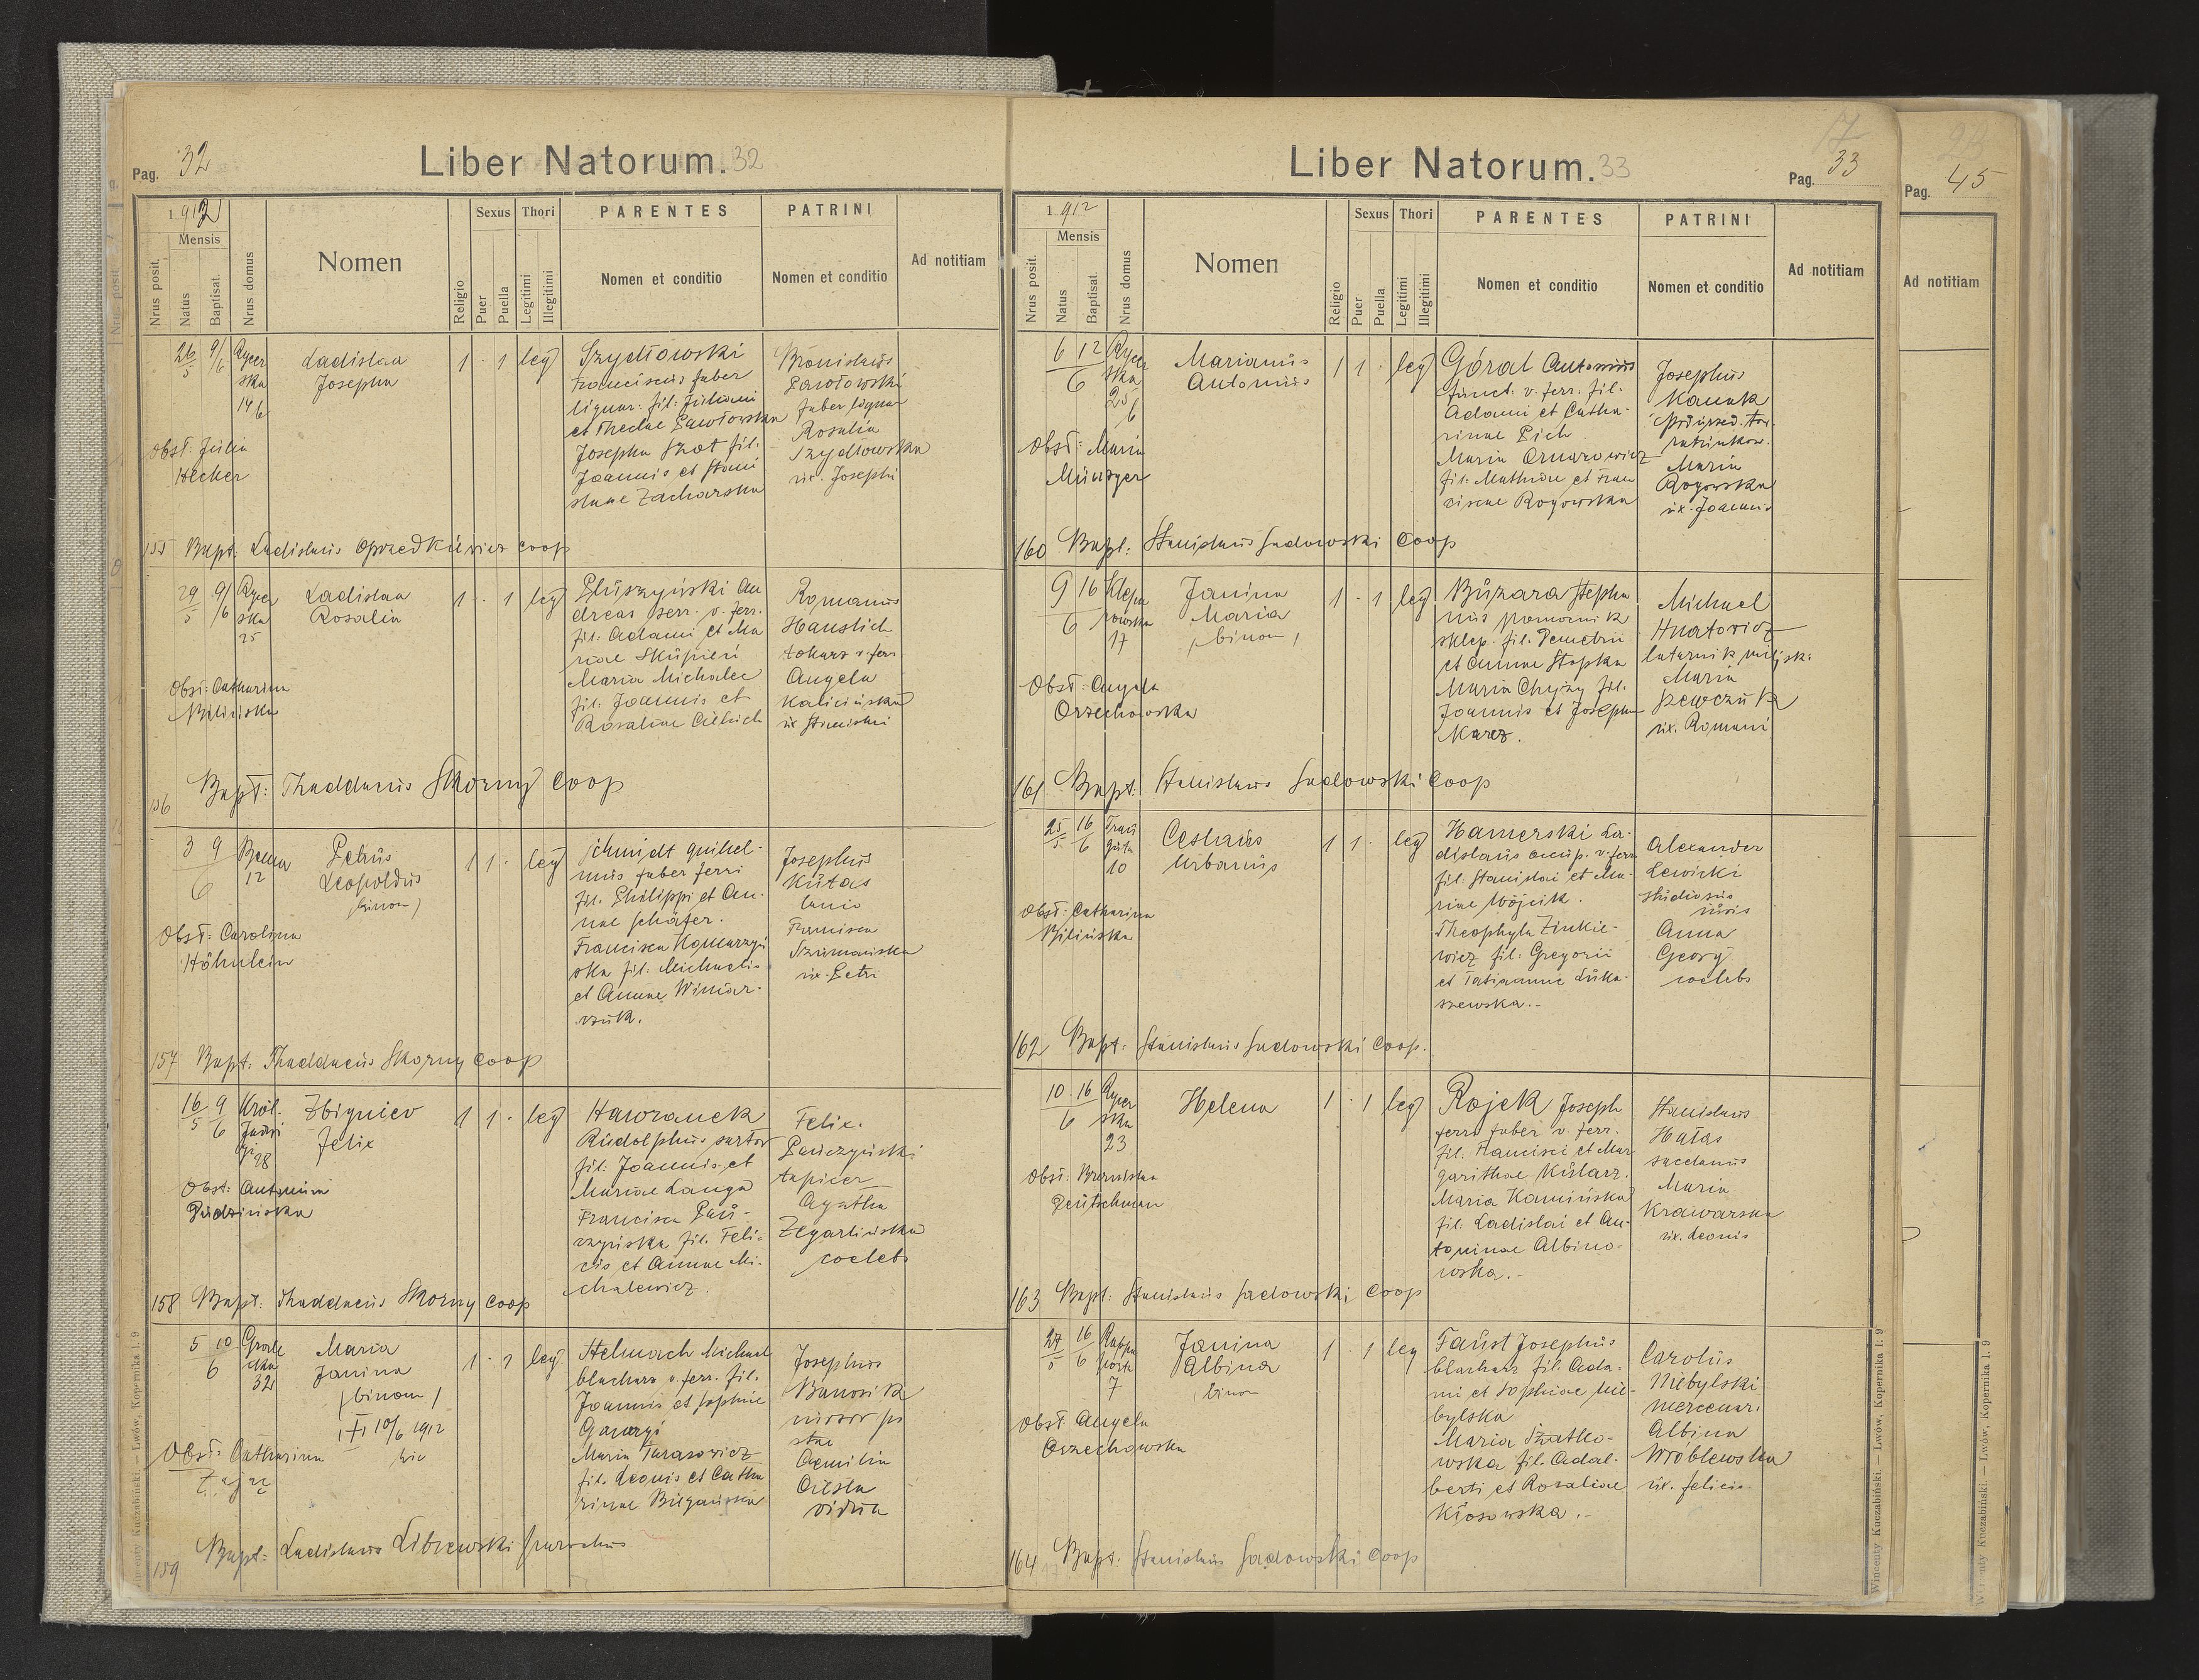 Pag. 32
Liber Natorum. 32
1912
Mensis
Nrus posit.
Natus
Baptisat.
Nrus domus
Nomen
Religio
Sexus
Puer
Puella
Thori
Legitimi
Illegitimi
PARENTES
Nomen et conditio
PATRINI
Nomen et conditio
Ad notitiam
26/5 9/6
Rycer
ska
14 b
Ladislaa
Josepha
1 · 1 leg
Szydłowski
Franciscus faber
lignar: fil: Juliani
et Theclae Pawłowska
Josepha Szot fil:
Joannis et Stani
slaae Zacharska
Bronislaus
Pawłowski
faber lignar
Rosalia
Szydłowska
ux. Josephi
Obst: Julia
Hecker
155 Bapt. Ladislaus Oprzedkiewicz coop
29/5 9/6
Rycer
ska
25
Ladislaa
Rosalia
1 · 1 leg
Pluszyński An
dreas serr. v. ferr.
fil: Adami et Ma
riae Skupień
Maria Michalec
fil: Joannis et
Rosaliae
Romanus
Hauslich
tokarz v. ferr
Angela
Kalicińska
ux Stanislai
Obst: Catharina
Bilińska
156 Bapt: Thaddaeus Skorny coop
3 9
6
Bema
12
Petrus
Leopoldus
(binom)
1 1 · leg
Schmidt Guilel-
mus faber ferri
fil. Philippi et An-
nae Schäfer.
Francisca Komarzyń
ska fil: Michaelis
et Annae Winiar-
czuk.
Josephus
Kutas
lanio
Francisca
Szumańska
ux. Petri
Obst: Carolina
Höhnlein
157 Bapt: Thaddaeus Skorny coop
16/5 9/6
Król.
Jadwi
gi 28
Zbigniev
Felix
1 1 · leg
Hawranek
Rudolphus sartor
fil: Joannis et
Mariae Langa
Francisca Pań-
czyńska fil. Feli-
cis et Annae Mi-
chalewicz.
Felix
Pańczyński
tapicer
Agatha
Zegarlińska
coelebs
Obst: Antonina
Pudzińska
158 Bapt: Thaddaeus Skorny coop
5 10
6
Grode
cka
32
Maria
Janina
(binom)
(†) 10/6 1912
hic
1 · 1 leg.
Stelmach Michael
blacharz v. ferr. fil.
Joannis et Sophiae
Gawryś
Maria Tarasowicz
fil. Leonis et Catha
rinae Biłgańska
Josephus
Banosik
Aemilia
Ciesla
vidua
Obst: Catharina
Zając
159 Bapt: Ladislaus Librewski parochus
Liber Natorum. 33
17
Pag. 33
1912
Mensis
Nrus posit.
Natus
Baptisat.
Nrus domus
Nomen
Religio
Sexus
Puer
Puella
Thori
Legitimi
Illegitimi
PARENTES
Nomen et conditio
PATRINI
Nomen et conditio
Ad notitiam
6 12
6
Rycer
ska
25 b
Marianus
Antonius
1 1 · leg
Góral Antonius
funct. v. ferr. fil.
Adami et Catha-
rinae Pich
Maria Ornarowicz
fil. Mathiae et Fran
ciscae Rogowska
Josephus
Kanak
Maria
Rogowska
ux. Joannis
Obst: Maria
Münzger
160 Bapt: Stanislaus Sadowski Coop
9 16
6
Klepa
rowska
17
Janina
Maria
(binom)
1 · 1 leg
Buzara Stepha
nus pomocnik
sklep. fil. Demetrii
et Annae Stopka
Maria Chyży fil.
Joannis et Josephae
Karcz.
Michael
Hnatowicz
latarnik miejski
Maria
Szewczuk
ux. Romani
Obst: Angela
Orzechowska
161 Bapt: Stanislaus Sadowski coop
25/5 16/6
Trau
guta
10
Ceslaus
Urbanus
1 1 · leg
Hamerski La-
dislaus occup. v. ferr
fil. Stanislai et Ma-
riae Wójcik.
Theophyla Zinkie-
wicz fil. Gregorii
et Tatiannae Łuka-
szewska.-
Alexander
Lewicki
studiosus
iuris
Anna
Georg
coelebs
Obst: Catharina
Bilińska
162 Bapt: Stanislaus Sadowski Coop.
10 16
6
Rycer
ska
23
Helena
1 · 1 leg
Rojek Joseph
ferri faber v. ferr.
fil. Francisci et Mar
garithae Kularz.
Maria Kamińska
fil. Ladislai et An-
toninae Albino-
wska.-
Stanislaus
Hałas
Maria
Krawarska
ux. Leonis
Obst: Bronislaa
Deutschman
163 Bapt: Stanislaus Sadowski Coop
27/5 16/6
Rappa
porta
7
Janina
Albina
binom
1 · 1 leg
Faust Josephus
blacharz fil. Ada-
mi et Sophiae Nie-
bylska
Maria Szatko-
wska fil. Adal-
berti et Rosaliae
Kłosowska.-
Carolus
Niebylski
mercenar.
Albina
Wróblewska
ux. Felicis
Obst: Angela
Orzechowska
164 Bapt. Stanislaus Sadowski Coop
Wincenty Kuczabiński. — Lwów, Kopernika l. 9
Pag. 45
Ad notitiam
Wincenty Kuczabiński. — Lwów, Kopernika l. 9